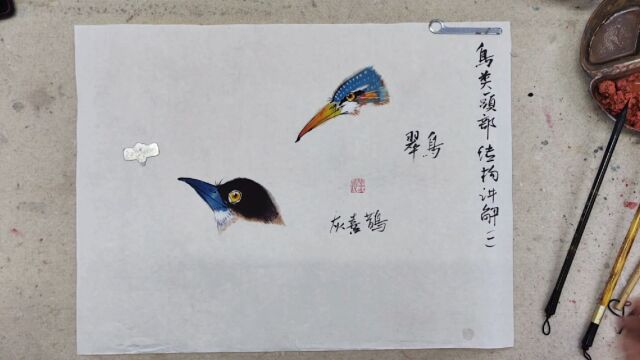 鳥类頭部结构讲解(二)
翠鳥
灰喜鵲